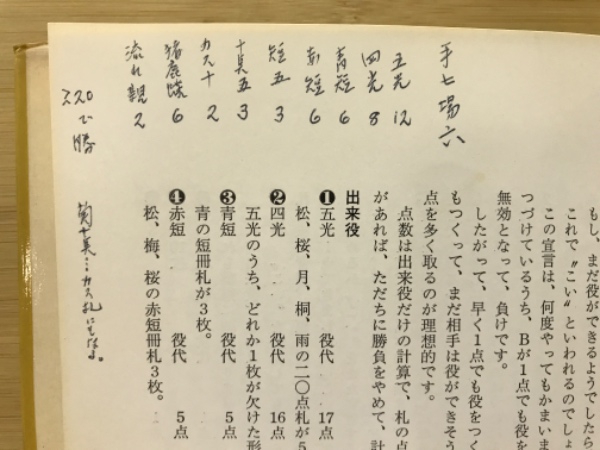 手七場六
五光 12
四光 8
青短 6
赤短 6
短五 3
十点五 3
カス十 2
猪鹿蝶 6
流れ親 2
で勝
菊十点…カス札にもなる。
もし、まだ役ができるようでしたら
これで〝こい〟といわれるのでしょ
この宣言は、何度やってもかまいま
つづけているうち、Bが1点でも役を
無効となって、負けです。
したがって、早く1点でも役をつく
もつくって、まだ相手は役ができそう
点を多く取るのが理想的です。
点数は出来役だけの計算で、札の点
があれば、ただちに勝負をやめて、計
出来役
❶五光 役代 17点
松、桜、月、桐、雨の二〇点札が5
❷四光 役代 16点
五光のうち、どれか1枚が欠けた形
❸青短 役代 5点
青の短冊札が3枚。
❹赤短 役代 5点
松、梅、桜の赤短冊札3枚。